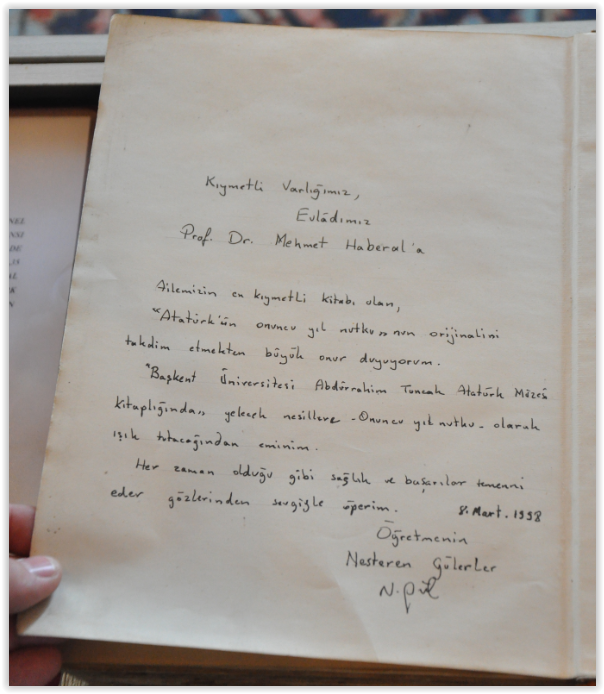 Kıymetli Varlığımız,
Evlâdımız
Prof. Dr. Mehmet Haberal'a
Ailemizin en kıymetli kitabı olan,
"Atatürk'ün onuncu yıl nutku" nun orijinalini
takdim etmekten büyük onur duyuyorum.
"Başkent Üniversitesi Abdürrahim Tuncak Atatürk Müzesi
kitaplığında" gelecek nesillere - Onuncu yıl nutku - olarak
ışık tutacağından eminim.
Her zaman olduğu gibi sağlık ve başarılar temenni
eder gözlerinden sevgiyle öperim. 8. Mart. 1998
Öğretmenin
Nesteren Gülerler
NEL
NSI
DE